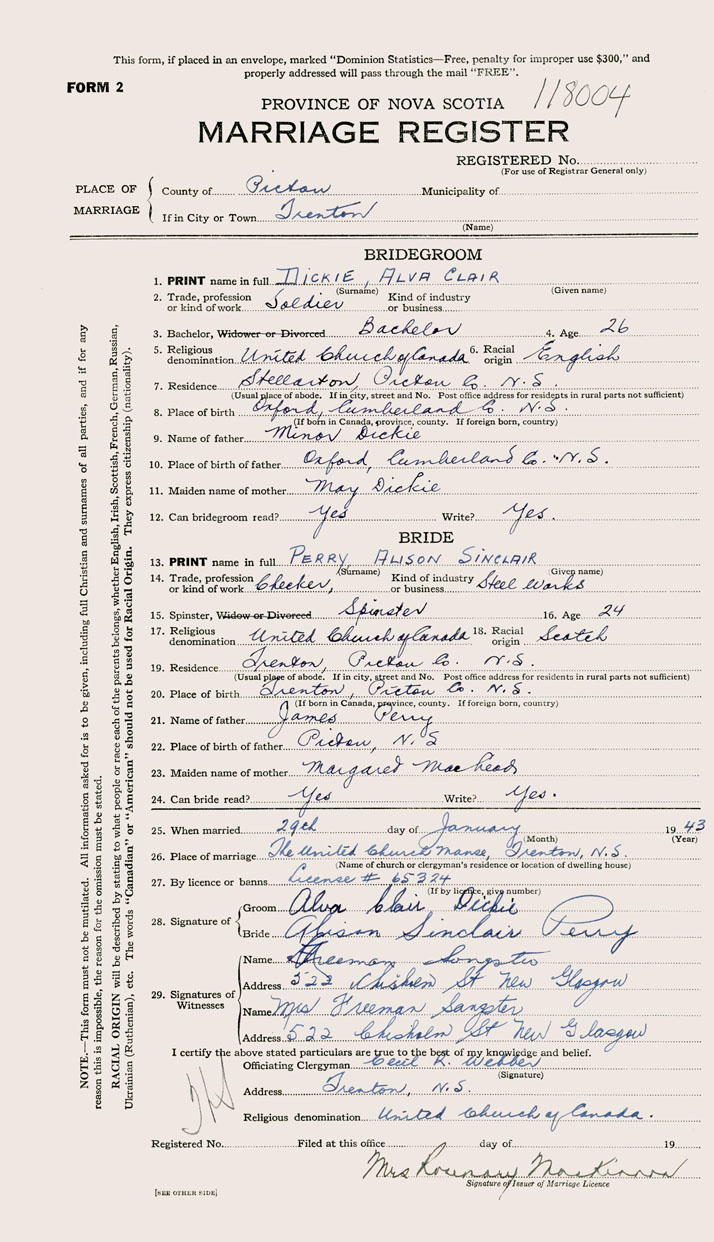 This form, if placed in an envelope, marked "Dominion Statistics—Free, penalty for improper use $300," and
properly addressed will pass through the mail "FREE".
FORM 2
118004
PROVINCE OF NOVA SCOTIA
MARRIAGE REGISTER
REGISTERED No.
(For use of Registrar General only)
PLACE OF MARRIAGE
County of Pictou Municipality of
If in City or Town Trenton
(Name)
BRIDEGROOM
1. PRINT name in full DICKIE, ALVA CLAIR
(Surname) (Given name)
2. Trade, profession or kind of work Soldier Kind of industry or business
3. Bachelor, Widower or Divorced Bachelor 4. Age 26
5. Religious denomination United Church of Canada 6. Racial origin English
7. Residence Stellarton, Pictou Co. N.S.
(Usual place of abode. If in city, street and No. Post office address for residents in rural parts not sufficient)
8. Place of birth Oxford, Cumberland Co. N.S.
(If born in Canada, province, county. If foreign born, country)
9. Name of father Minor Dickie
10. Place of birth of father Oxford, Cumberland Co. N.S.
11. Maiden name of mother May Dickie
12. Can bridegroom read? Yes Write? Yes.
BRIDE
13. PRINT name in full PERRY ALISON SINCLAIR
(Surname) (Given name)
14. Trade, profession or kind of work Checker, Kind of industry or business Steel Works
15. Spinster, Widow or Divorced Spinster 16. Age 24
17. Religious denomination United Church of Canada 18. Racial origin Scotch
19. Residence Trenton, Pictou Co. N.S.
(Usual place of abode. If in city, street and No. Post office address for residents in rural parts not sufficient)
20. Place of birth Trenton, Pictou Co. N.S.
(If born in Canada, province, county. If foreign born, country)
21. Name of father James Perry
22. Place of birth of father Pictou, N.S
23. Maiden name of mother Margaret MacLeod
24. Can bride read? Yes Write? Yes.
25. When married 29th day of January 1943
(Month) (Year)
26. Place of marriage The United Church Manse, Trenton, N.S.
(Name of church or clergyman's residence or location of dwelling house)
27. By licence or banns License # 65324
(If by licence, give number)
28. Signature of
Groom Alva Clair Dickie
Bride Alison Sinclair Perry
29. Signatures of Witnesses
Name Freeman Sangster
Address 522 Chisholm St New Glasgow
Name Mrs Freeman Sangster
Address 522 Chisholm St New Glasgow
I certify the above stated particulars are true to the best of my knowledge and belief.
Officiating Clergyman Cecil K. Webber
(Signature)
Address Trenton, N.S.
Religious denomination United Church of Canada.
Registered No. Filed at this office day of 19
Mrs Rosemary MacKinnon
Signature of Issuer of Marriage Licence
[SEE OTHER SIDE]
NOTE.—This form must not be mutilated. All information asked for is to be given, including full Christian and surnames of all parties, and if for any
reason this is impossible, the reason for the omission must be stated.
RACIAL ORIGIN will be described by stating to what people or race each of the parents belongs, whether English, Irish, Scottish, French, German, Russian,
Ukrainian (Ruthenian), etc. The words "Canadian" or "American" should not be used for Racial Origin. They express citizenship (nationality).